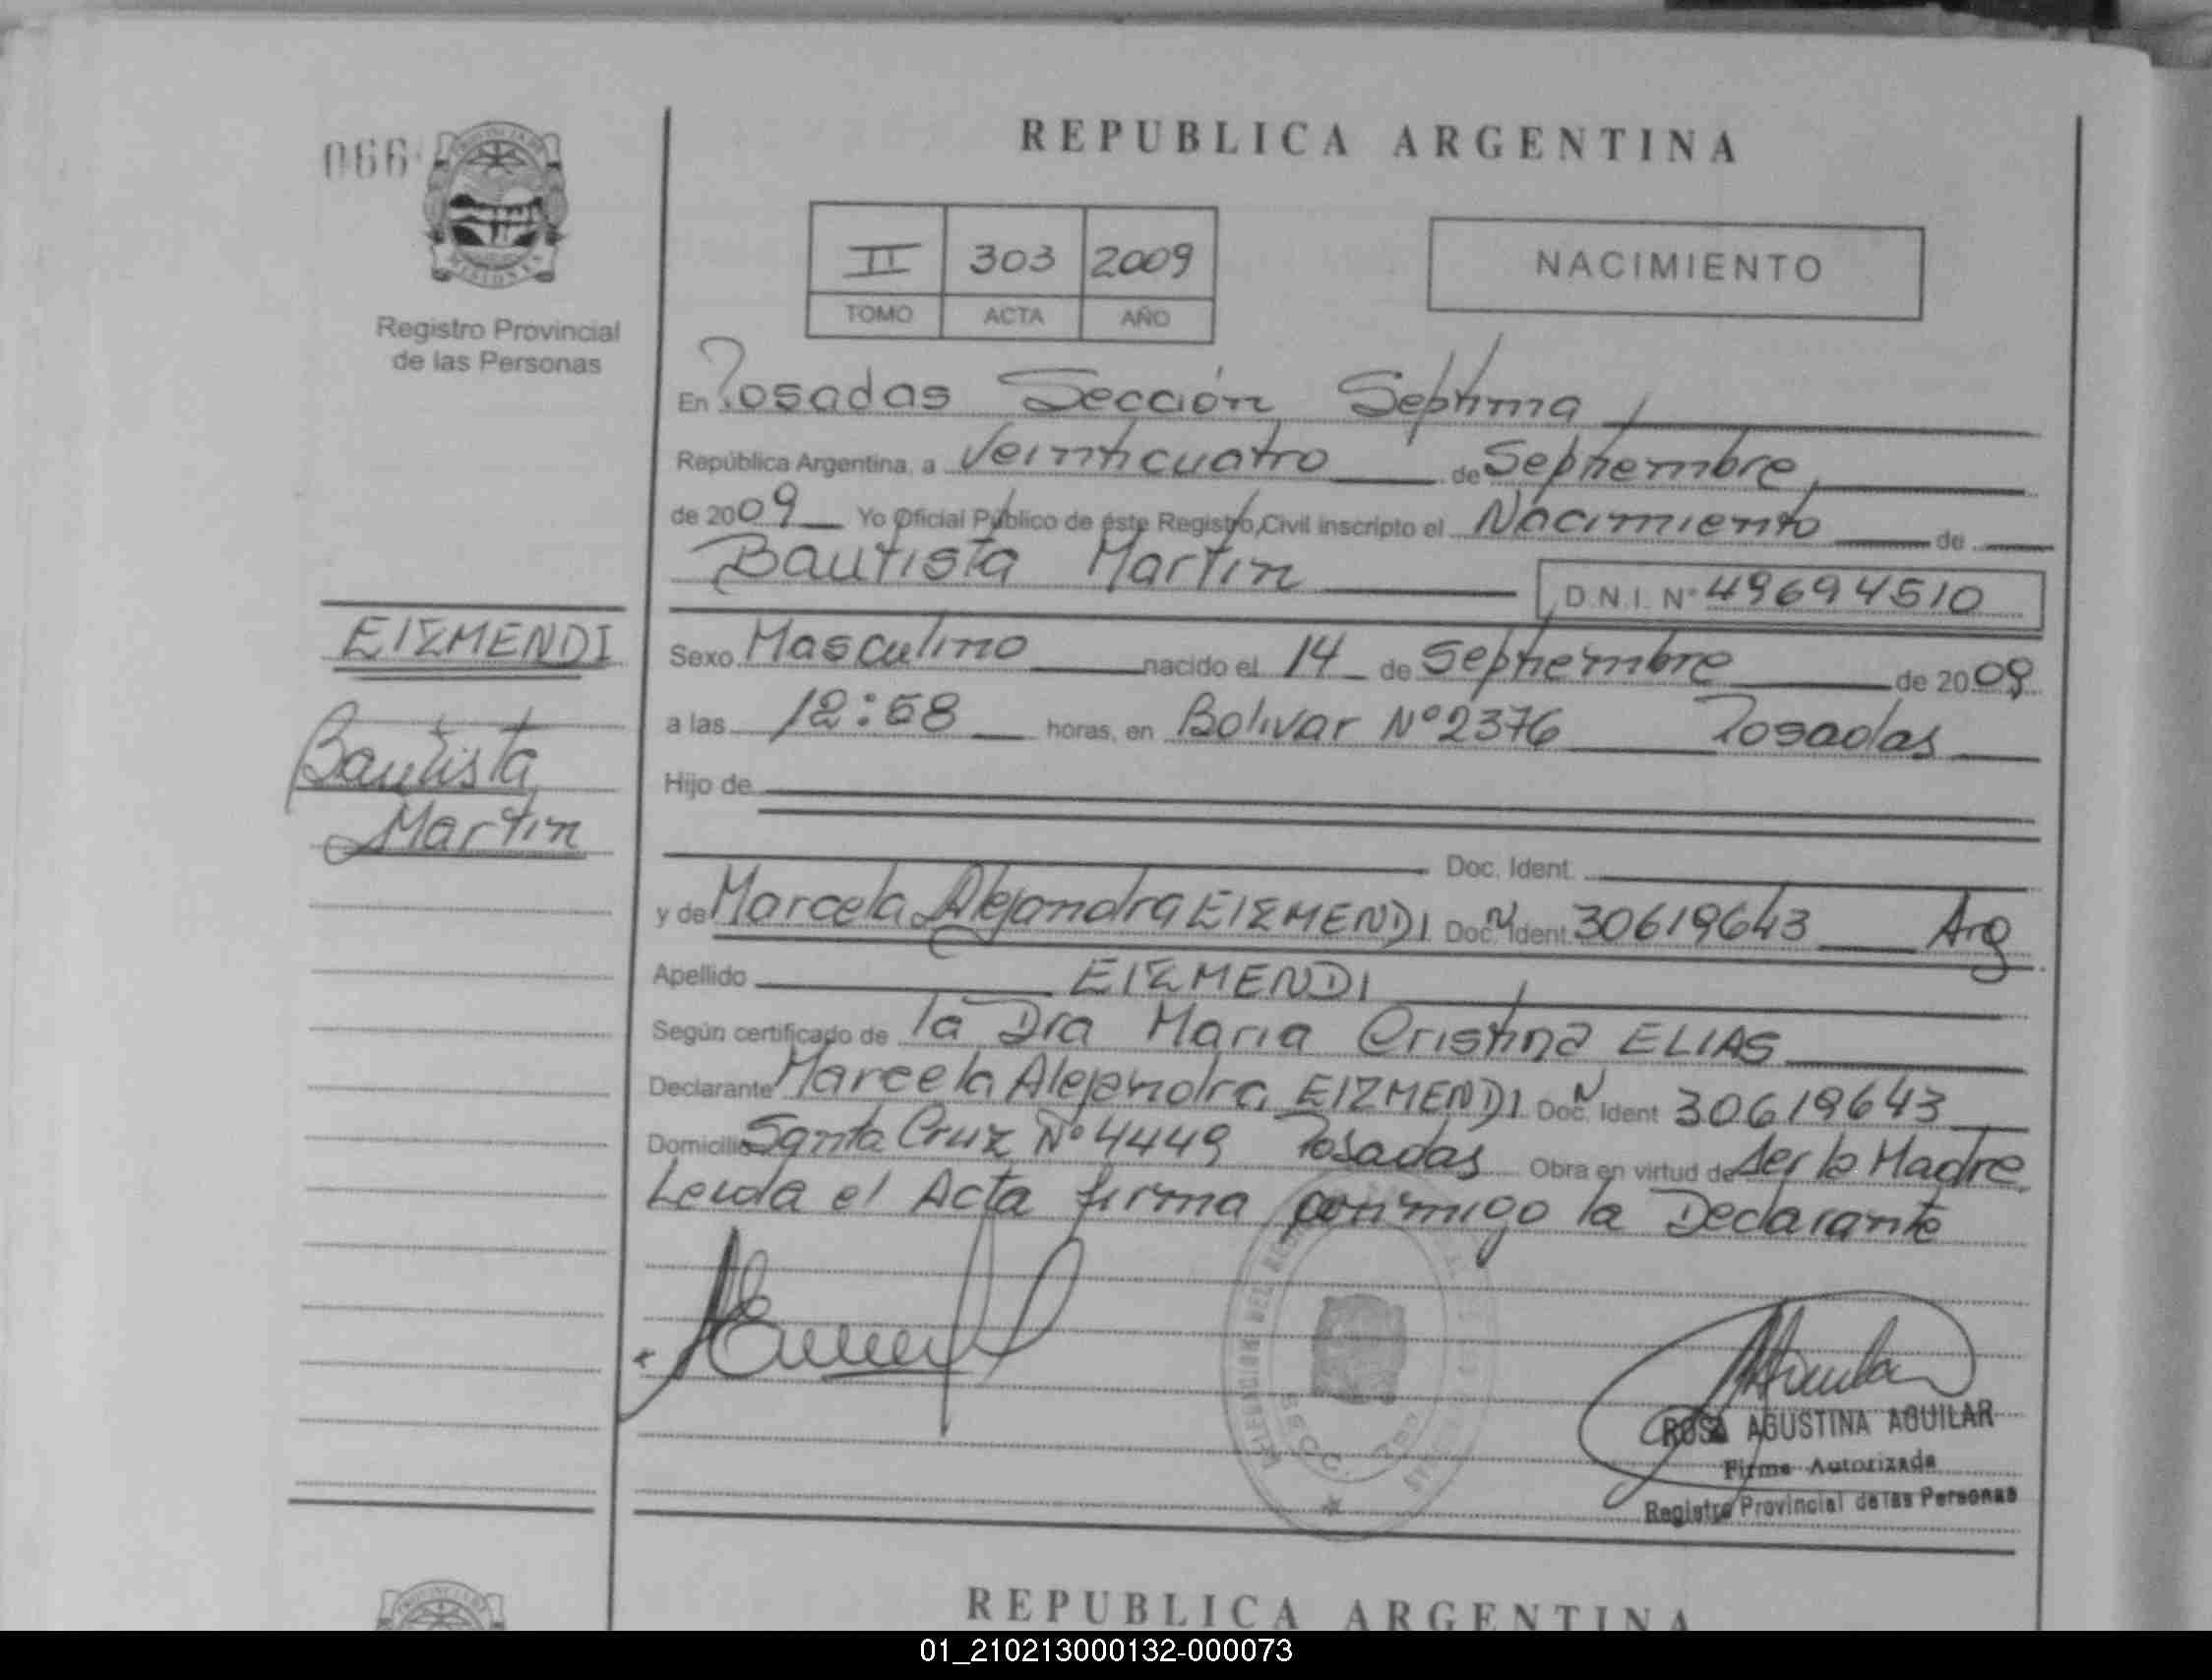 066
REPUBLICA ARGENTINA
II 303 2009
TOMO ACTA AÑO
NACIMIENTO
Registro Provincial
de las Personas
En Posadas Sección Septima
República Argentina, a Veinticuatro de Septiembre
de 2009 Yo Oficial Público de éste Registro Civil inscripto el Nacimiento de
Bautista Martin D.N.I. Nº 49694510
EIZMENDI
Bautista
Martin
Sexo Masculino nacido el 14 de Septiembre de 2009
a las 12:58 horas, en Bolivar Nº 2376 Posadas
Hijo de
Doc. Ident.
y de Marcela Alejandra EIZMENDI Doc. Ident. 30619643 Arg
Apellido EIZMENDI
Según certificado de la Dra Maria Cristina ELIAS
Declarante Marcela Alejandra EIZMENDI Doc. Ident 30619643
Domicilio Santa Cruz Nº 4449 Posadas Obra en virtud de ser la Madre
Leida el Acta firma conmigo la Declarante
ROSA AGUSTINA AGUILAR
Firma Autorizada
Registro Provincial de las Personas
REPUBLICA ARGENTINA
01_210213000132-000073